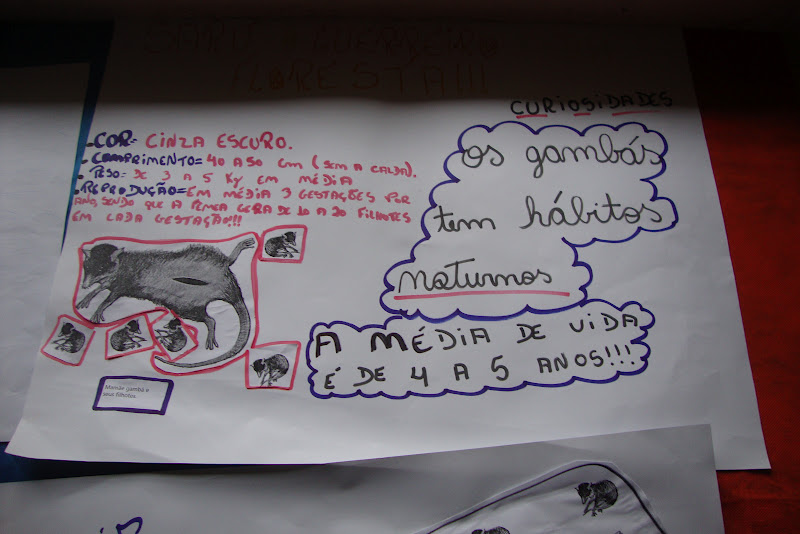 FLORESTA!!!
CURIOSIDADES
• COR= CINZA ESCURO.
• COMPRIMENTO= 40 A 50 cm (SEM A CALDA).
• PESO= DE 3 A 5 Kg EM MÉDIA
• REPRODUÇÃO= EM MÉDIA 3 GESTAÇÕES POR
ANO, SENDO QUE A FEMEA GERA DE 10 A 20 FILHOTES
EM CADA GESTAÇÃO!!!
os gambás
tem hábitos
noturnos
A MÉDIA DE VIDA
É DE 4 A 5 ANOS!!!
Mamãe gambá e
seus filhotes.